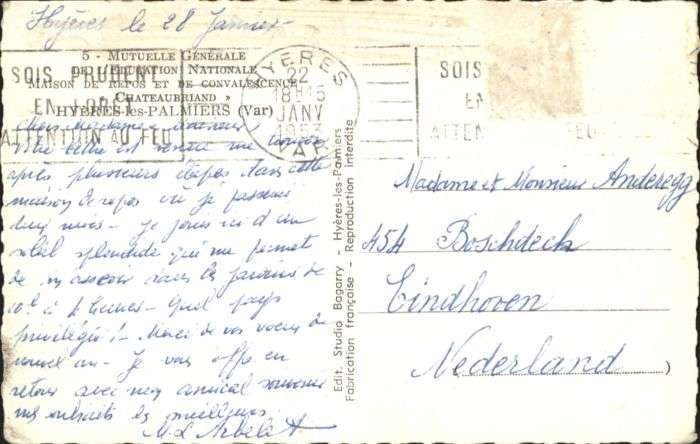 Hyères le 28 Janvier
5 - MUTUELLE GÉNÉRALE
DE L'ÉDUCATION NATIONALE
MAISON DE REPOS ET DE CONVALESCENCE
CHATEAUBRIAND »
HYÈRES-les-PALMIERS (Var)
SOIS PRUDENT
EN FORET
ATTENTION AU FEU
HYERES
22
18H15
JANV
VAR
SOIS
EN
ATTEN
Chère Madame
est venue me
après plusieurs étapes dans cette
maison de repos où je passerai
deux mois - Je jouis ici d'un
soleil splendide qui me permet
de m'asseoir dans les jardins de
10h à 4 heures - Quel pays
privilégié ! - Merci de vos voeux de
nouvel an - Je vous offre en
retour avec mon amical souvenir
mes souhaits les meilleurs.
Edit. Studio Bagarry - Hyères-les-Palmiers
Fabrication française - Reproduction interdite
Madame et Monsieur Anderegg
454 Boschdeck
Eindhoven
Nederland